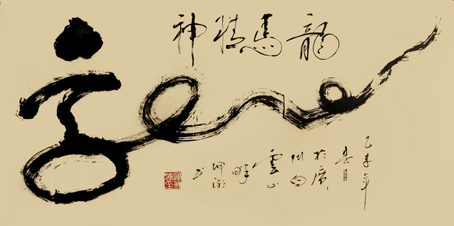 龍馬精神
乙未年
春月
於廣
州白
雲山
畔
书